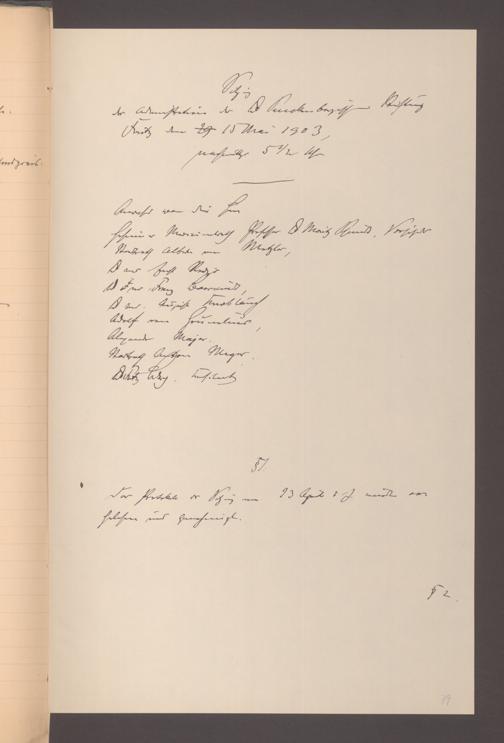 Sitzung
der Administration der Dr Senckenbergischen Stiftung
Freitag den 15 Mai 1903,
nachmittags 5 1/2 Uhr
Anwesend waren die Herren
Geheimer Medicinalrath Professor Dr Moritz Schmidt, Vorsitzender
Stadtrath Albert von Metzler,
Dr med Ernst
Dr jur Fritz
Dr med. August Knoblauch
Adolf von Grunelius,
Alexander Majer.
Stadtrath Anthon Meyer.
Dr Fritz
§ 1.
Das Protokoll der Sitzung vom 23 April d. J. wurde vor
gelesen und genehmigt.
§ 2.
79